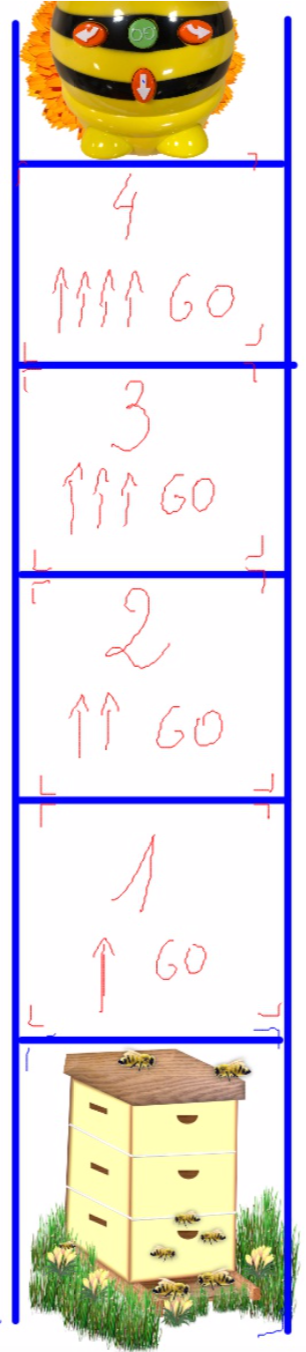 GO
4
↑↑↑↑ GO
3
↑↑↑ GO
2
↑↑ GO
1
↑ GO